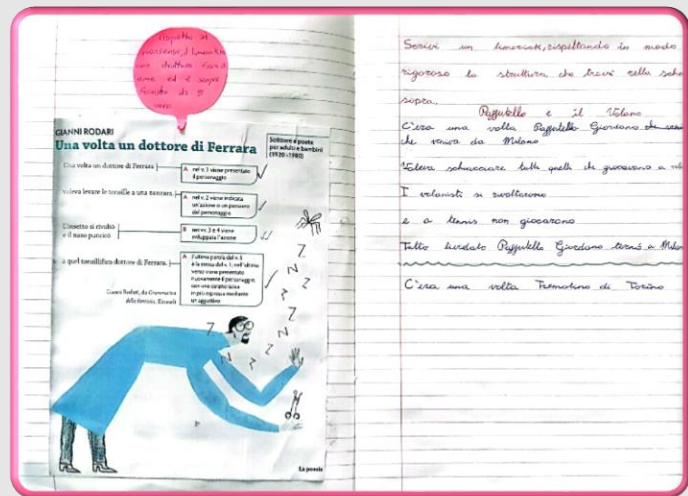 rispetto al
nonsense, il limerick
una struttura
ed è sempre
formato da 5
versi
GIANNI RODARI
Una volta un dottore di Ferrara
Scrittore e poeta
per adulti e bambini
(1920 -1980)
Una volta un dottore di Ferrara
A nel v. 1 viene presentato
il personaggio
voleva levare le tonsille a una zanzara.
A nel v. 2 viene indicata
un'azione o un pensiero
del personaggio
L'insetto si rivoltò
e il naso puncicò
B nei vv. 3 e 4 viene
sviluppata l'azione
a quel tonsillifico dottore di Ferrara.
A l'ultima parola del v. 5
è la stessa del v. 1; nell'ultimo
verso viene presentato
nuovamente il personaggio,
con una caratteristica
in più espressa mediante
un aggettivo
Gianni Rodari, da Grammatica
della fantasia, Einaudi
Z
Z
N
Z
Z
Z
Z
Z
Z
N
Z
La poesia
Scrivi un limerick, rispettando in modo
rigoroso la struttura che trovi nella
sopra.
Paffutello e il Volano
C'era una volta Paffutello Giordano
che veniva da Milano
Voleva schiacciare tutti quelli che giocavano a
I volanisti si rivoltarono
e a tennis non giocarono
Tutto Paffutello Giordano tornò a
C'era una volta Tremotino di Torino